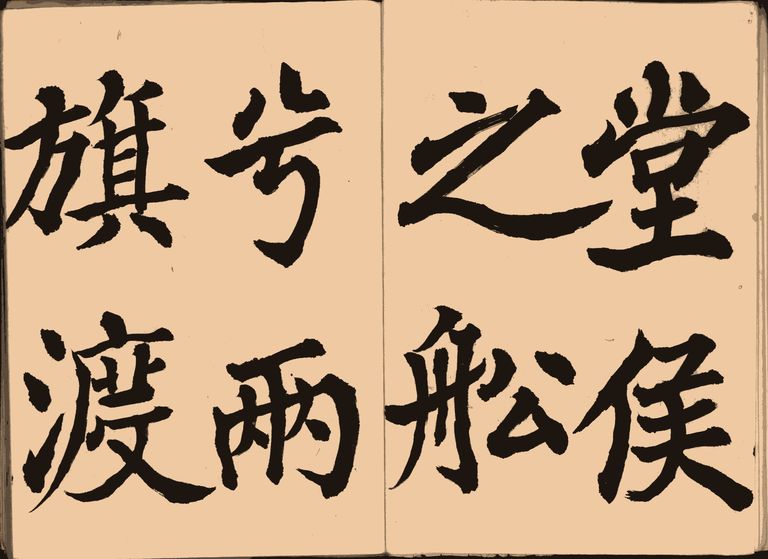 堂侯
之舩
兮兩
旗渡